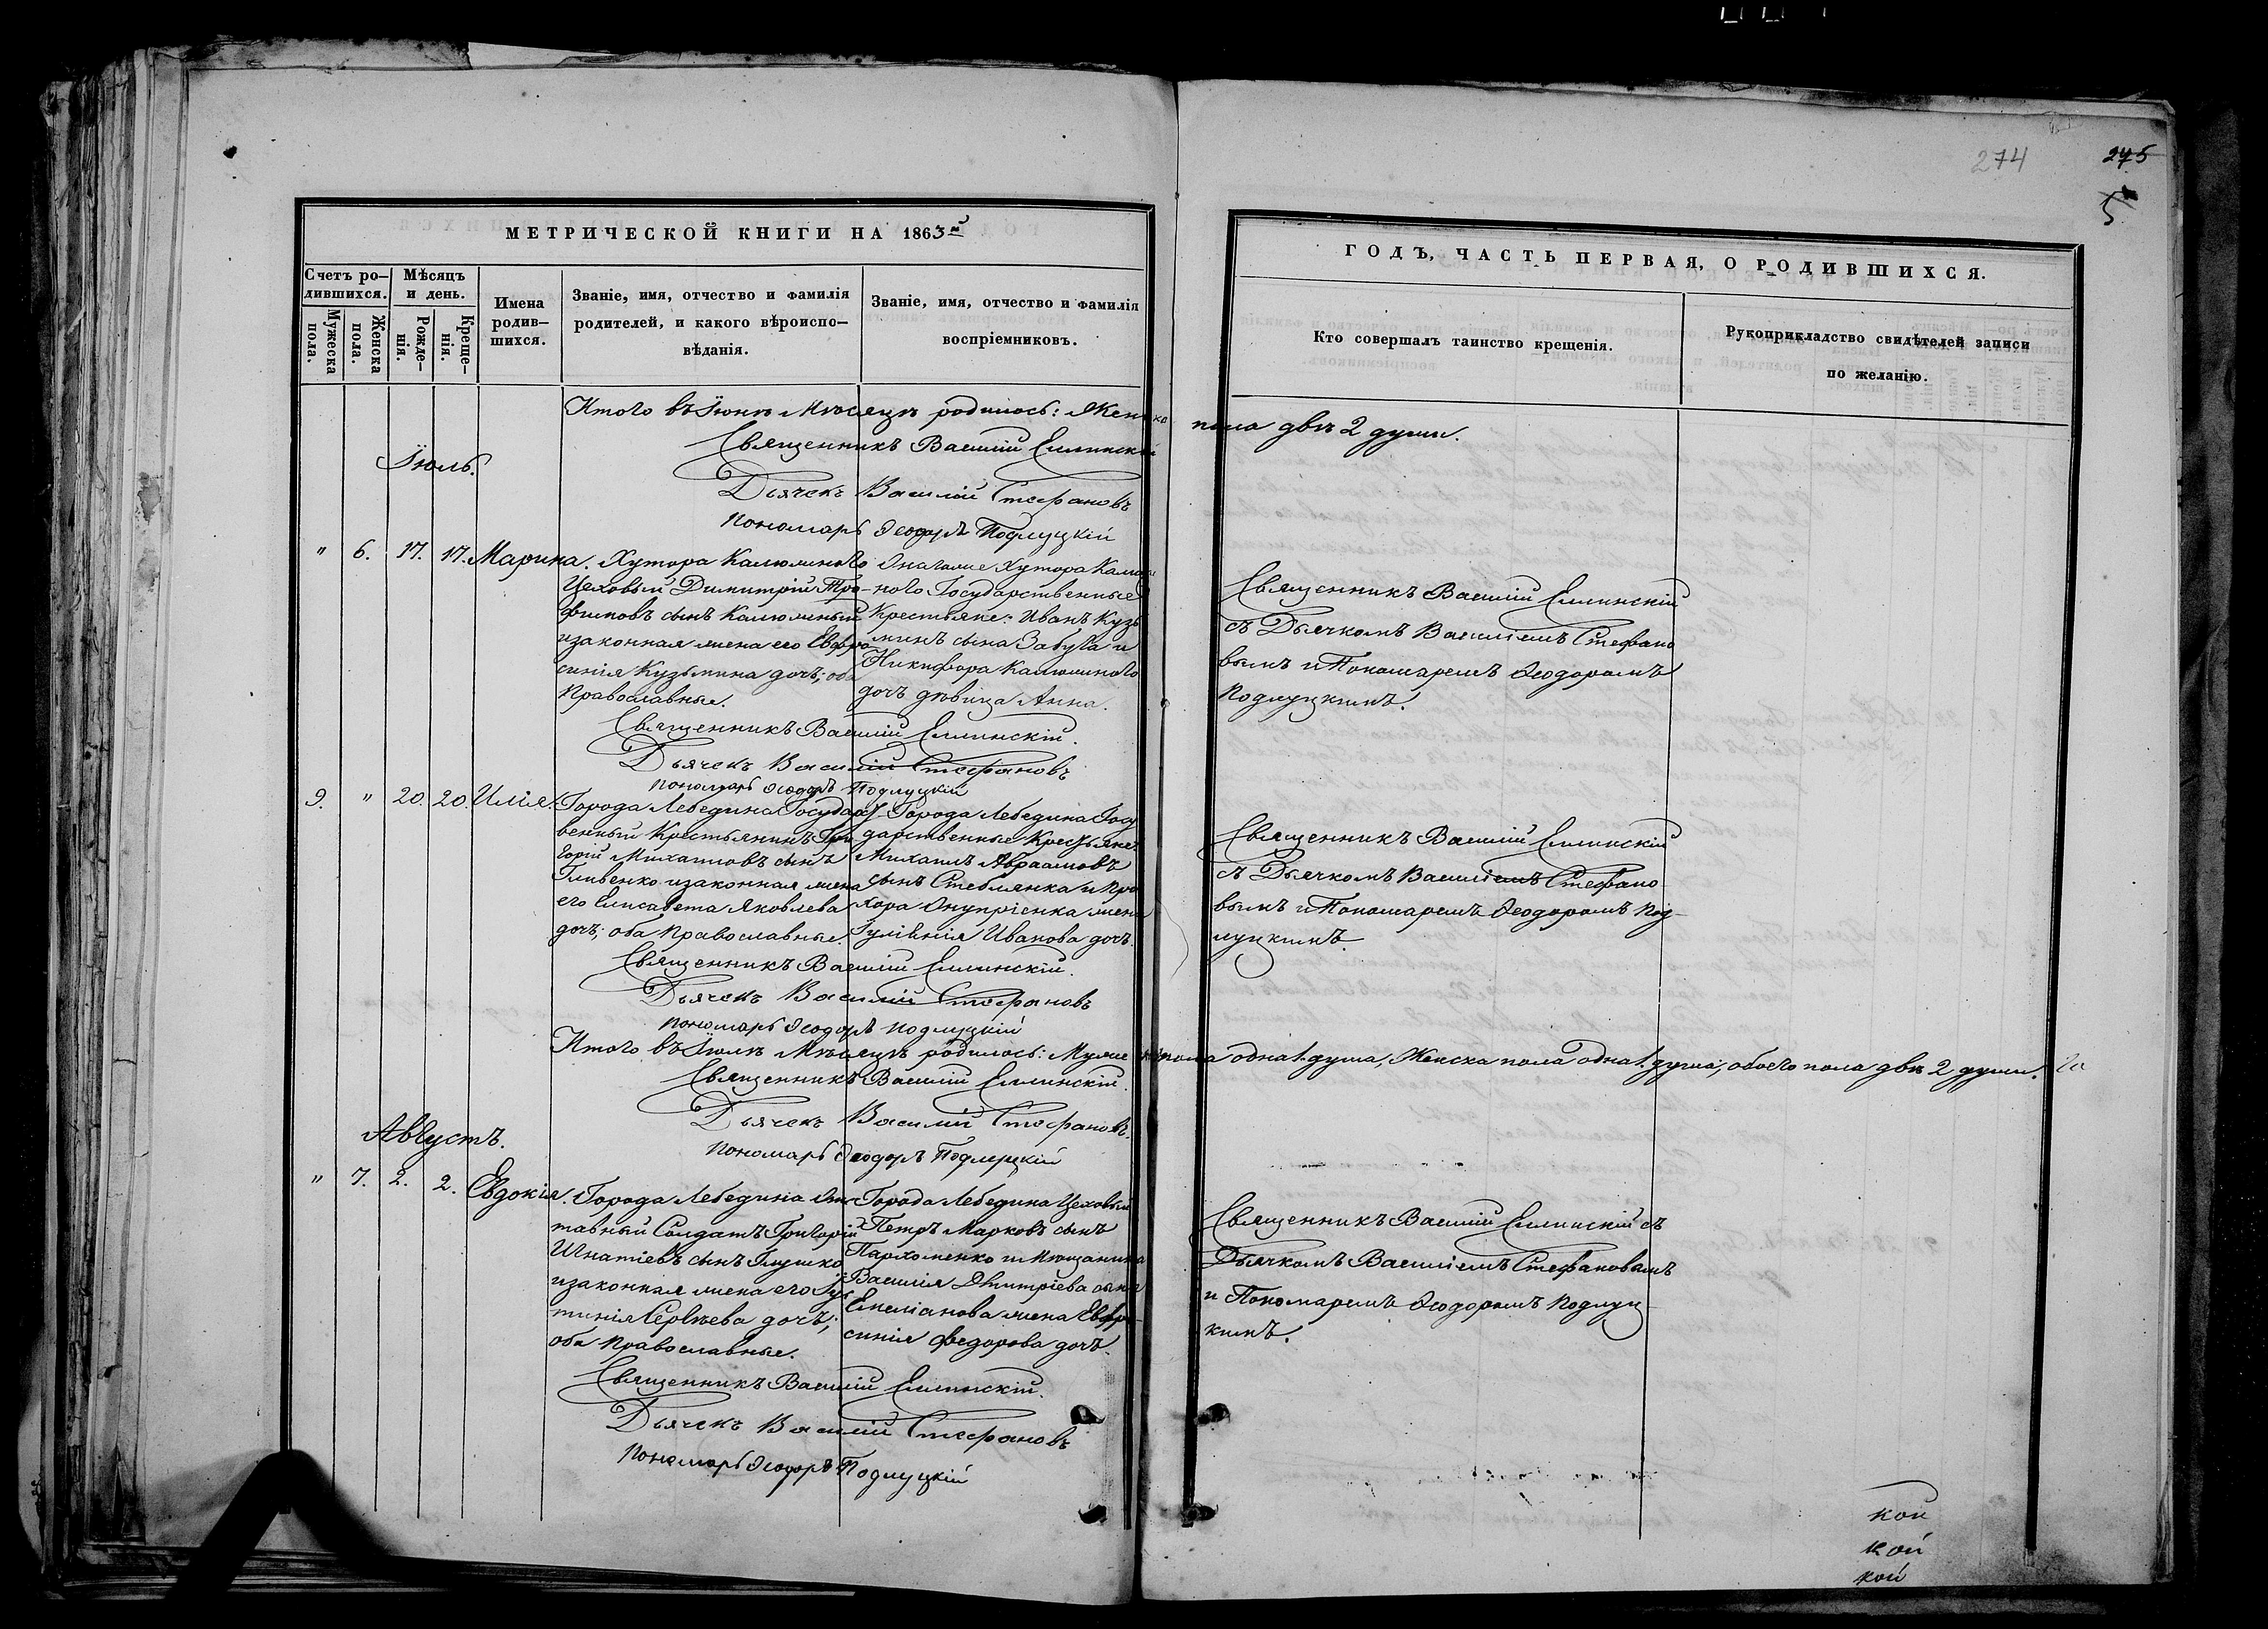 274
275
5
МЕТРИЧЕСКОЙ КНИГИ НА 1863й
ГОДЪ, ЧАСТЬ ПЕРВАЯ, О РОДИВШИХСЯ.
Счетъ родившихся.
Мужеска пола.
Женска пола.
Мѣсяцъ и день.
Рожденія.
Крещенія.
Имена родившихся.
Званіе, имя, отчество и фамилія родителей, и какого вѣроисповѣданія.
Званіе, имя, отчество и фамилія воспріемниковъ.
Кто совершалъ таинство крещенія.
Рукоприкладство свидѣтелей записи по желанію.
Итого въ Іюнѣ Мѣсяцѣ родилось: Женско пола двѣ 2 души.
Священникъ Василій Еллинскій
Дьячекъ Василій Стефановъ
Пономарь Ѳеодоръ Подлуцкій
Іюль.
" 6. 17. 17. Марина.
Хутора Калюжного
Цеховый Димитрій Тро-
фимовъ сынъ Калюжный
и законная жена его Евфро
синія Кузьмина дочь; оба
Православные.
Хутора Калюж
ного Государственные
Крестьяне: Иванъ Кузь
минъ сынъ и
Никифора Калюжного
дочь дѣвица Анна.
Священникъ Василій Еллинскій
съ Дьячкомъ Василіемъ Стефано
вымъ и Пономаремъ Ѳеодоромъ
Подлуцкимъ.
Священникъ Василій Еллинскій.
Дьячекъ Василій Стефановъ
Пономарь Ѳеодоръ Подлуцкій
9. " 20. 20. Илія.
Города Лебедина Государст
венный Крестьянинъ Гри
горій Михаиловъ сынъ
и законная жена
его Елисавета Яковлева
дочь; оба Православные.
Города Лебедина Госу
дарственные Крестьяне:
Михаилъ Авраамовъ
сынъ Стеблянка и Про
хора Онупріенка жена
Іуліанія Иванова дочь.
Священникъ Василій Еллинскій
съ Дьячкомъ Василіемъ Стефано
вымъ и Пономаремъ Ѳеодоромъ Под-
луцкимъ.
Священникъ Василій Еллинскій.
Дьячекъ Василій Стефановъ
Пономарь Ѳеодоръ Подлуцкій
Итого въ Іюлѣ Мѣсяцѣ родилось: Мужеска пола одна 1. душа, Женска пола одна 1. душа, обоего пола двѣ 2 души.
Священникъ Василій Еллинскій.
Дьячекъ Василій Стефановъ.
Пономарь Ѳеодоръ Подлуцкій
Августъ.
" 7. 2. 2. Евдокія.
Города Лебедина Отс
тавный Солдатъ Григорій
Игнатіевъ сынъ Глушко
и законная жена его Іус
тинія Сергѣева дочь;
оба Православные.
Города Лебедина Цеховый
Петръ Марковъ сынъ
Пархоменко и Мѣщанина
Василія Димитріева сына
Емеліанова жена Евфро-
синія Федорова дочь.
Священникъ Василій Еллинскій съ
Дьячкомъ Василіемъ Стефановымъ
и Пономаремъ Ѳеодоромъ Подлуц
кимъ.
Священникъ Василій Еллинскій.
Дьячекъ Василій Стефановъ
Пономарь Ѳеодоръ Подлуцкій
кой
кой
кой